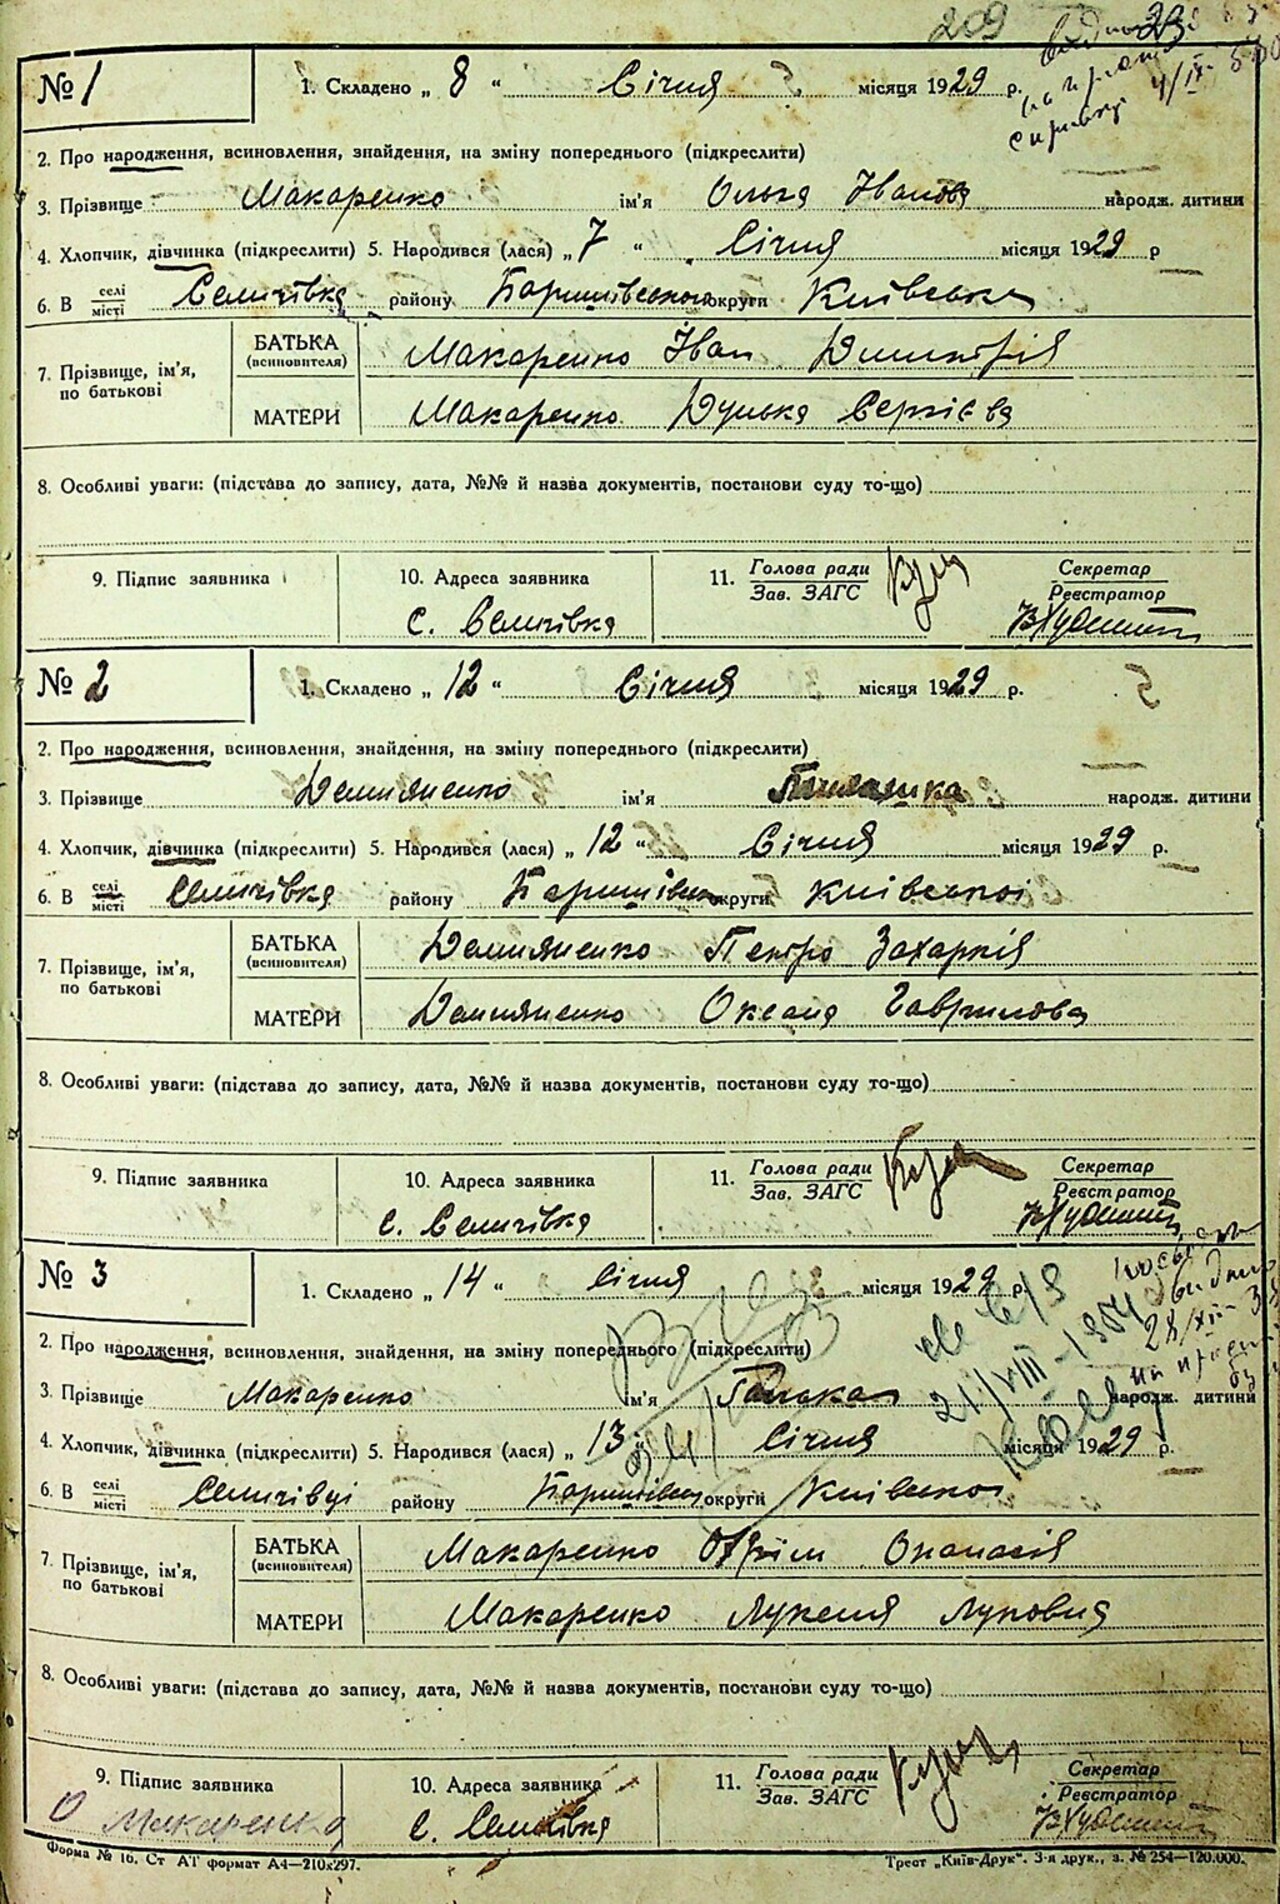 209
№ 1
1. Складено „ 8 “ Січня місяця 1929 р.
2. Про народження, всиновлення, знайдення, на зміну попереднього (підкреслити)
3. Прізвище Макаренко ім’я Олька Іванова народж. дитини
4. Хлопчик, дівчинка (підкреслити) 5. Народився (лася) „ 7 “ Січня місяця 1929 р
6. В селі/місті Селичівка району Баришівського округи Київська
7. Прізвище, ім’я, по батькові
БАТЬКА (всиновителя) Макаренко Іван
МАТЕРИ Макаренко Дунька Сергієва
8. Особливі уваги: (підстава до запису, дата, №№ й назва документів, постанови суду то-що)
9. Підпис заявника 10. Адреса заявника 11. Голова ради / Зав. ЗАГС Секретар / Реєстратор
с. Селичівка
№ 2
1. Складено „ 12 “ Січня місяця 1929 р.
2. Про народження, всиновлення, знайдення, на зміну попереднього (підкреслити)
3. Прізвище Демияненко ім’я народж. дитини
4. Хлопчик, дівчинка (підкреслити) 5. Народився (лася) „ 12 “ Січня місяця 1929 р.
6. В селі/місті Селичівка району округи Київської
7. Прізвище, ім’я, по батькові
БАТЬКА (всиновителя) Демияненко Петро Захаркія
МАТЕРИ Демияненко Оксана Гаврилова
8. Особливі уваги: (підстава до запису, дата, №№ й назва документів, постанови суду то-що)
9. Підпис заявника 10. Адреса заявника 11. Голова ради / Зав. ЗАГС Секретар / Реєстратор
с. Селичівка
№ 3
1. Складено „ 14 “ Січня місяця 1929 р.
2. Про народження, всиновлення, знайдення, на зміну попереднього (підкреслити)
3. Прізвище Макаренко ім’я Галька народж. дитини
4. Хлопчик, дівчинка (підкреслити) 5. Народився (лася) „ 13 “ Січня місяця 1929 р.
6. В селі/місті Селичівці району округи
7. Прізвище, ім’я, по батькові
БАТЬКА (всиновителя) Макаренко Опанасія
МАТЕРИ Макаренко Лукеля Луковна
8. Особливі уваги: (підстава до запису, дата, №№ й назва документів, постанови суду то-що)
9. Підпис заявника 10. Адреса заявника 11. Голова ради / Зав. ЗАГС Секретар / Реєстратор
О Макаренко с. Селичівка
Форма № 16. Ст АТ формат А4—210x297. Трест „Київ-Друк“. 3-я друк., з. № 254—120.000.